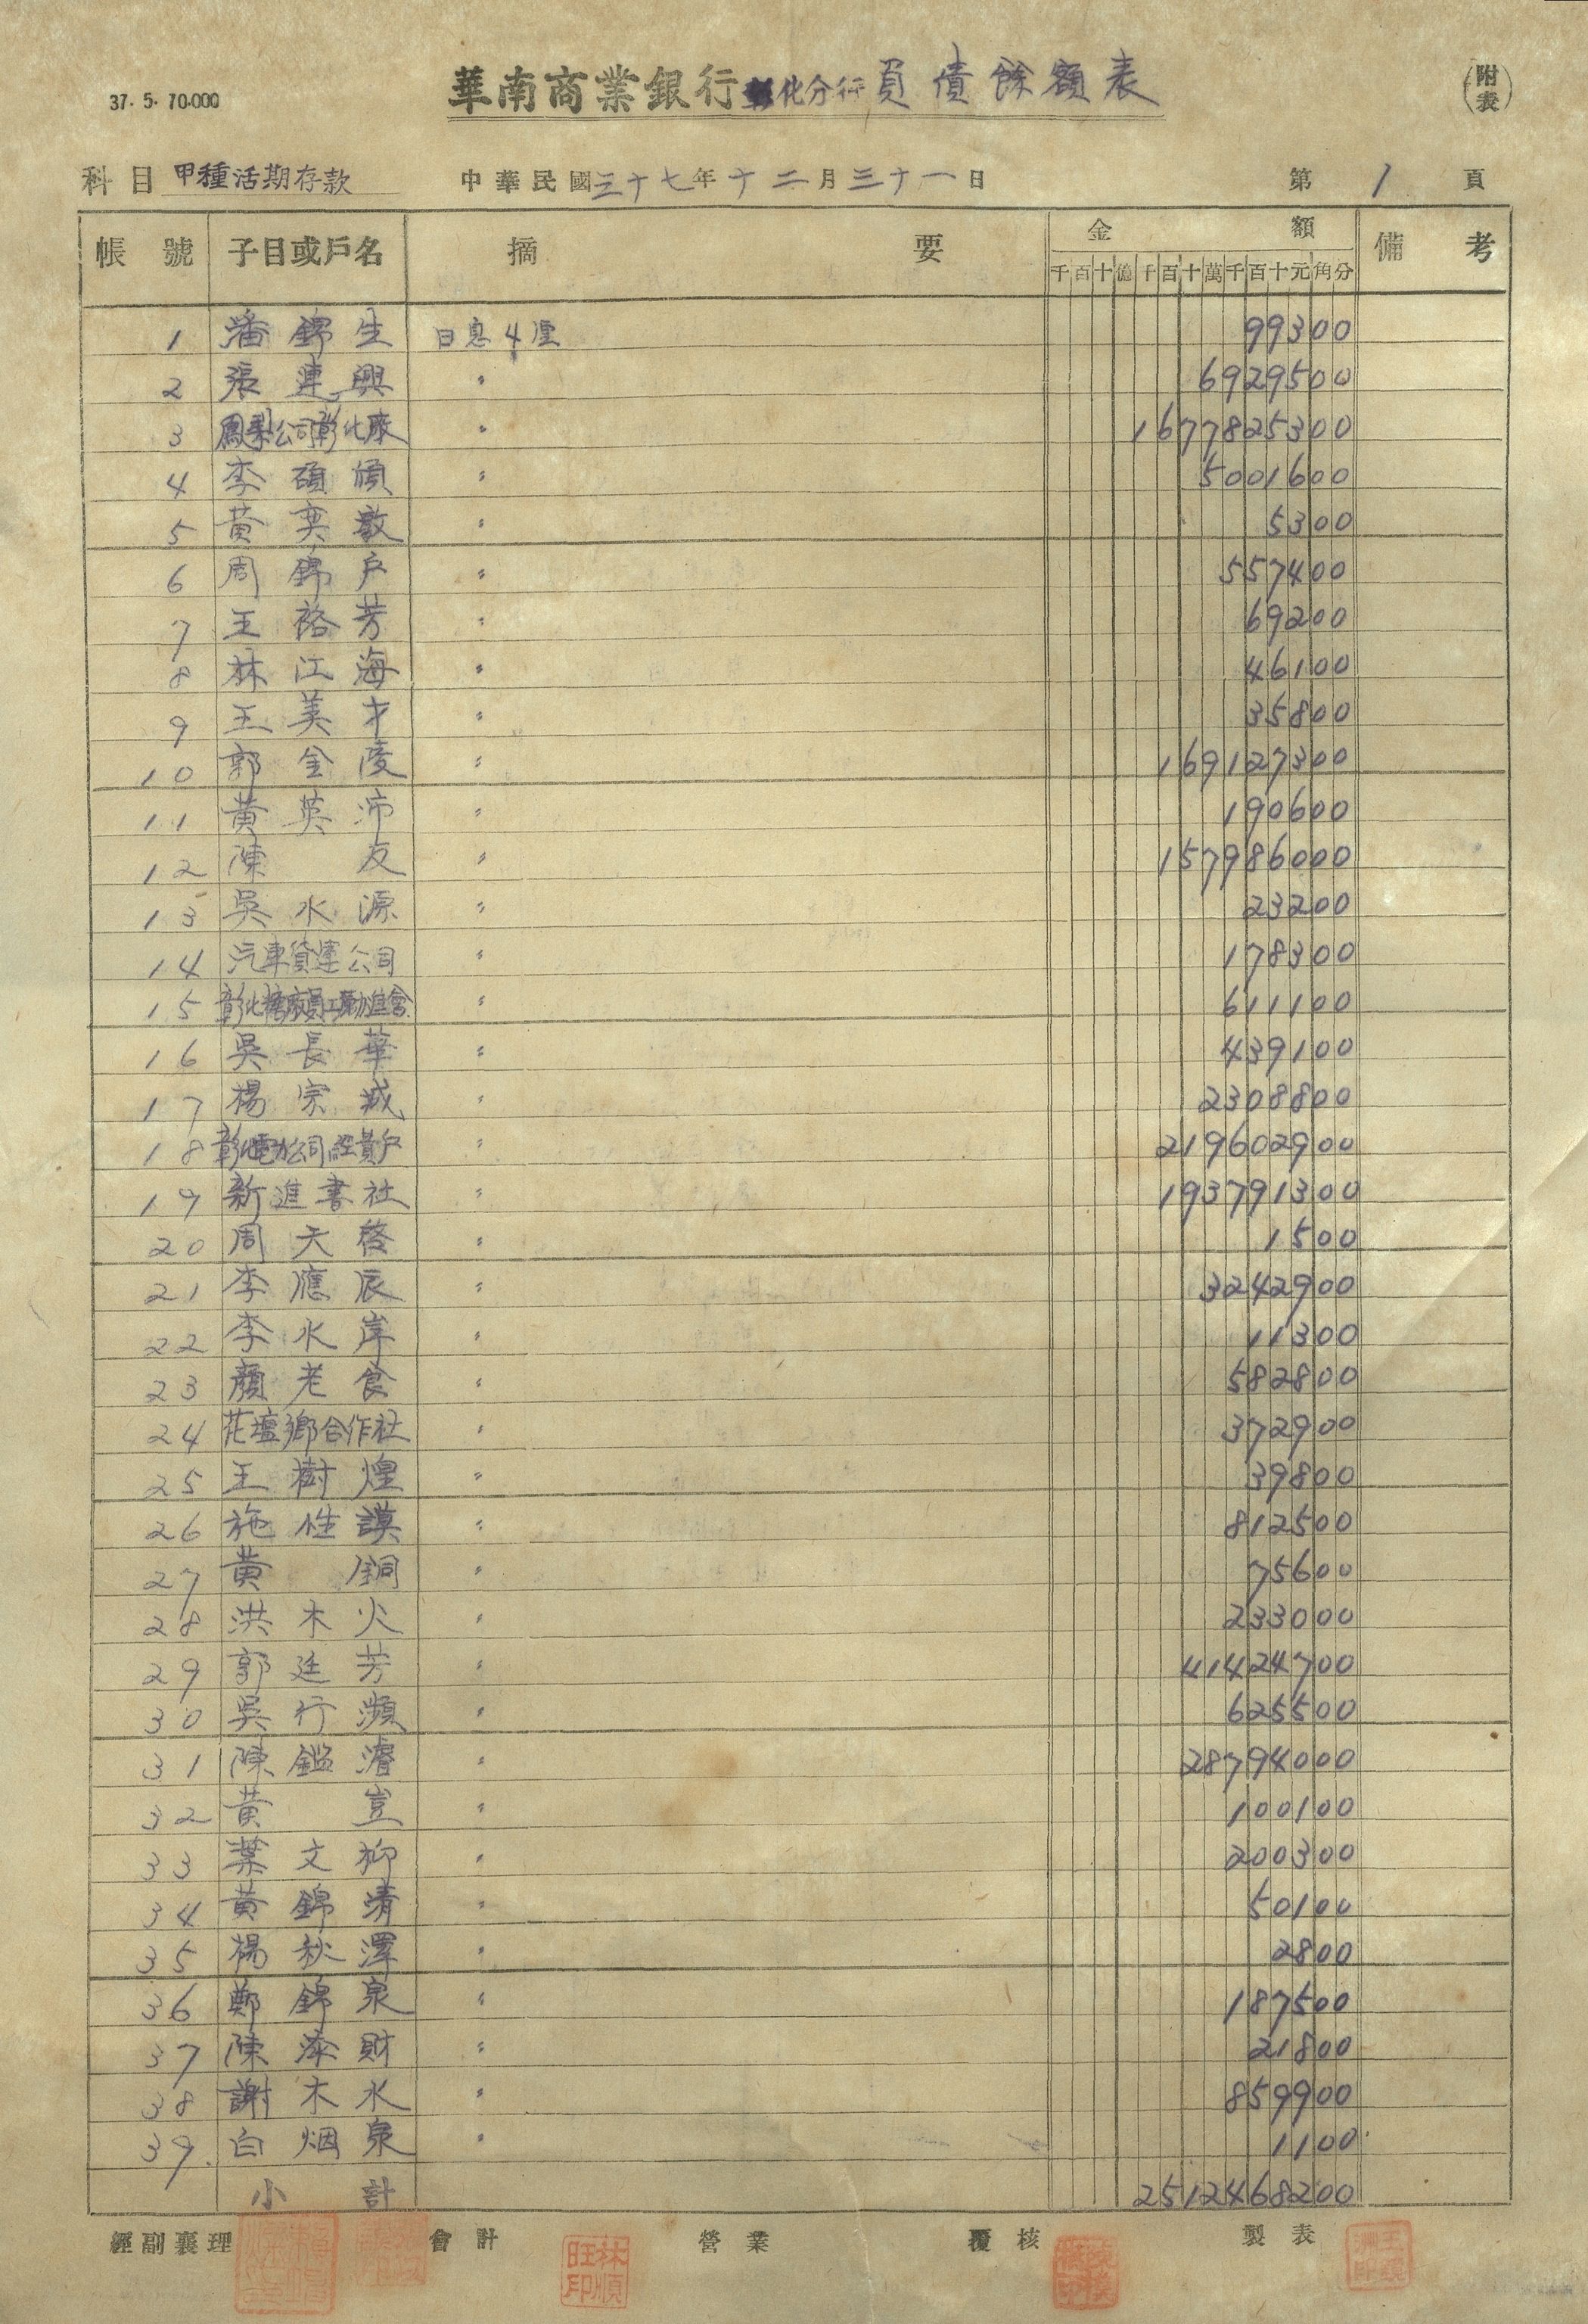 37. 5. 70.000
華南商業銀行彰化分行負債餘額表
(附表)
科目 甲種活期存款 中華民國三十七年十二月三十一日 第 1 頁
帳號 子目或戶名 摘要 金額 備考
千百十億千百十萬千百十元角分
1 潘錦生 日息4厘 99300
2 張連興 〃 6929500
3 鳳梨公司彰化廠 〃 1677825300
4 李碩 〃 5001600
5 黃奕敬 〃 5300
6 周錦戶 〃 557400
7 王裕芳 〃 69200
8 林江海 〃 46100
9 王美才 〃 35800
10 郭金陵 〃 169127300
11 黃英沛 〃 190600
12 陳友 〃 157986000
13 吳水源 〃 23200
14 汽車貨運公司 〃 178300
15 彰化糖廠員工勵進會 〃 611100
16 吳長華 〃 439100
17 楊宗城 〃 2308800
18 彰化電力公司經費戶 〃 219602900
19 新進書社 〃 193791300
20 周天啓 〃 1500
21 李應辰 〃 3242900
22 李水岸 〃 11300
23 顏老食 〃 582800
24 花壇鄉合作社 〃 372900
25 王樹煌 〃 39800
26 施性謨 〃 812500
27 黃銅 〃 75600
28 洪木火 〃 233000
29 郭廷芳 〃 41424700
30 吳行瀕 〃 625500
31 陳鑑濬 〃 28794000
32 黃豈 〃 100100
33 葉文柳 〃 200300
34 黃錦清 〃 50100
35 楊秋澤 〃 2800
36 鄭錦泉 〃 187500
37 陳添財 〃 21800
38 謝木水 〃 859900
39. 白烟泉 〃 1100
小計 2512468200
經副襄理 會計 營業 覆核 製表
林順旺印